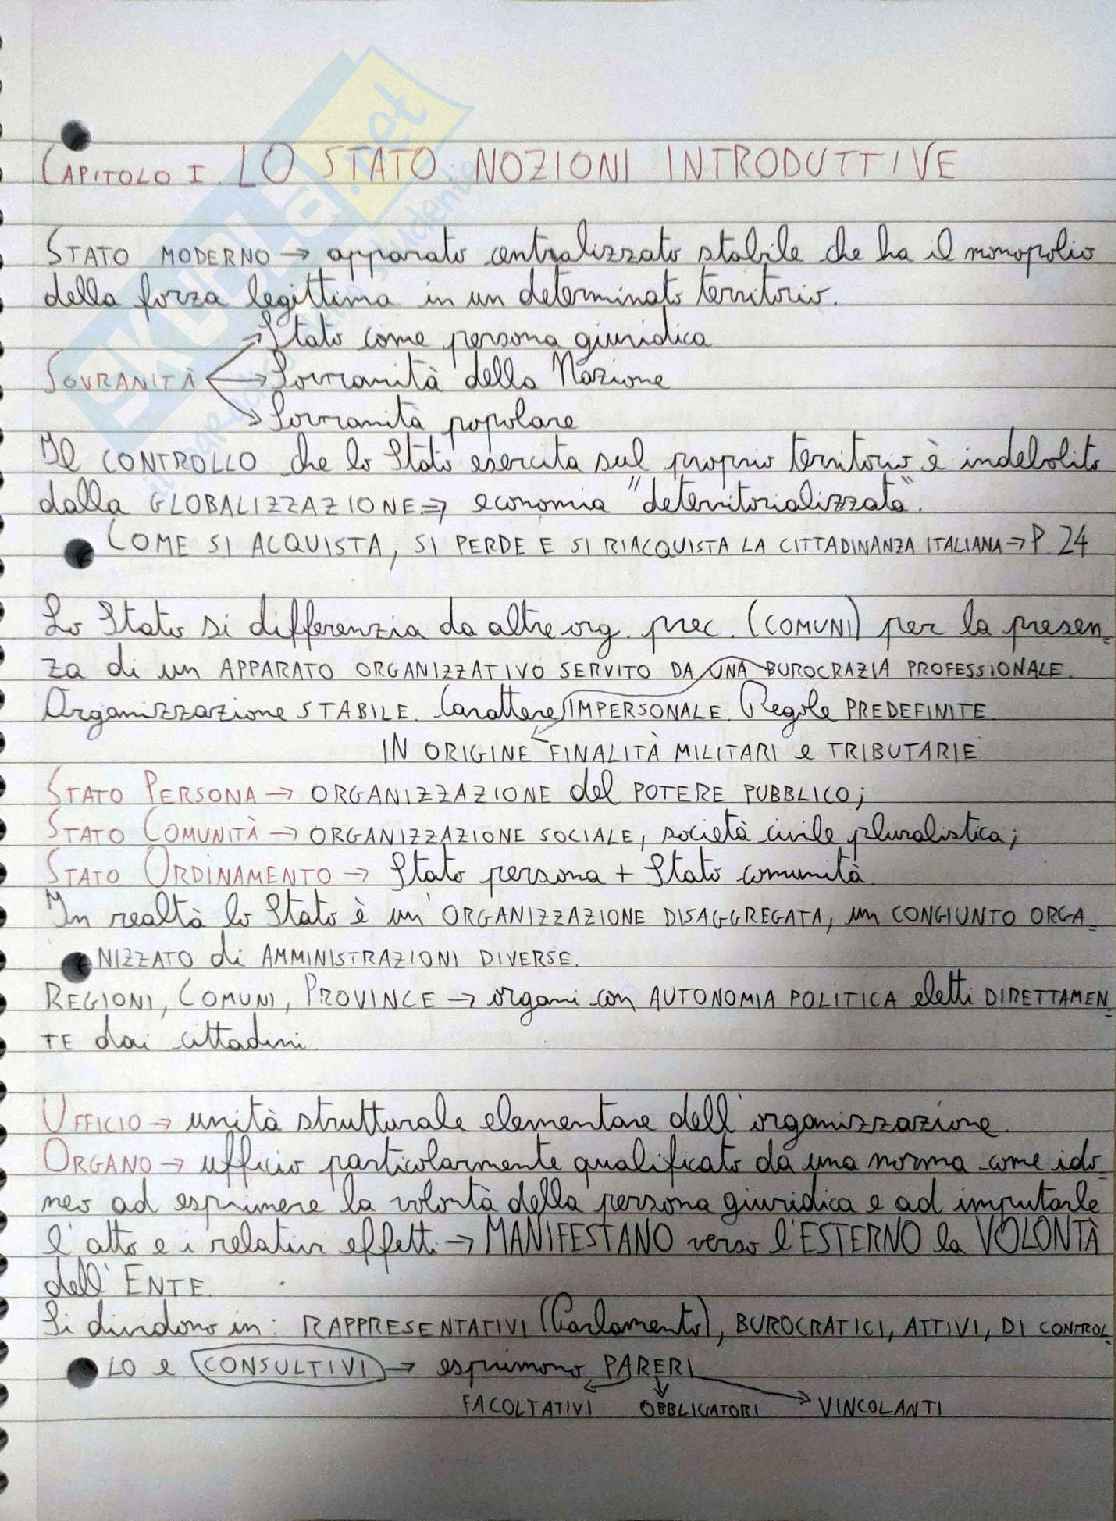 CAPITOLO I LO STATO NOZIONI INTRODUTTIVE
STATO MODERNO → apparato centralizzato stabile che ha il monopolio
della forza legittima in un determinato territorio.
Stato come persona giuridica
SOVRANITÀ → Sovranità della Nazione
Sovranità popolare
Il CONTROLLO che lo Stato esercita sul proprio territorio è indebolito
dalla GLOBALIZZAZIONE ⇒ economia "deterritorializzata".
COME SI ACQUISTA, SI PERDE E SI RIACQUISTA LA CITTADINANZA ITALIANA → P 24
Lo Stato si differenzia da altre org. prec. (COMUNI) per la presen-
za di un APPARATO ORGANIZZATIVO SERVITO DA UNA BUROCRAZIA PROFESSIONALE.
Organizzazione STABILE. Carattere IMPERSONALE. Regole PREDEFINITE
IN ORIGINE FINALITÀ MILITARI e TRIBUTARIE
STATO PERSONA → ORGANIZZAZIONE del POTERE PUBBLICO;
STATO COMUNITÀ → ORGANIZZAZIONE SOCIALE, società civile pluralistica;
STATO ORDINAMENTO → Stato persona + Stato comunità
In realtà lo Stato è un'ORGANIZZAZIONE DISAGGREGATA, un CONGIUNTO ORGA-
NIZZATO di AMMINISTRAZIONI DIVERSE.
REGIONI, COMUNI, PROVINCE → organi con AUTONOMIA POLITICA eletti DIRETTAMEN-
TE dai cittadini
UFFICIO → unità strutturale elementare dell'organizzazione.
ORGANO → ufficio particolarmente qualificato da una norma come ido-
neo ad esprimere la volontà della persona giuridica e ad imputarle
l'atto e i relativi effetti → MANIFESTANO verso l'ESTERNO la VOLONTÀ
dell'ENTE.
Si dividono in: RAPPRESENTATIVI (Parlamento), BUROCRATICI, ATTIVI, DI CONTROL-
LO e CONSULTIVI → esprimono PARERI
FACOLTATIVI OBBLIGATORI VINCOLANTI
SKUOLA.net